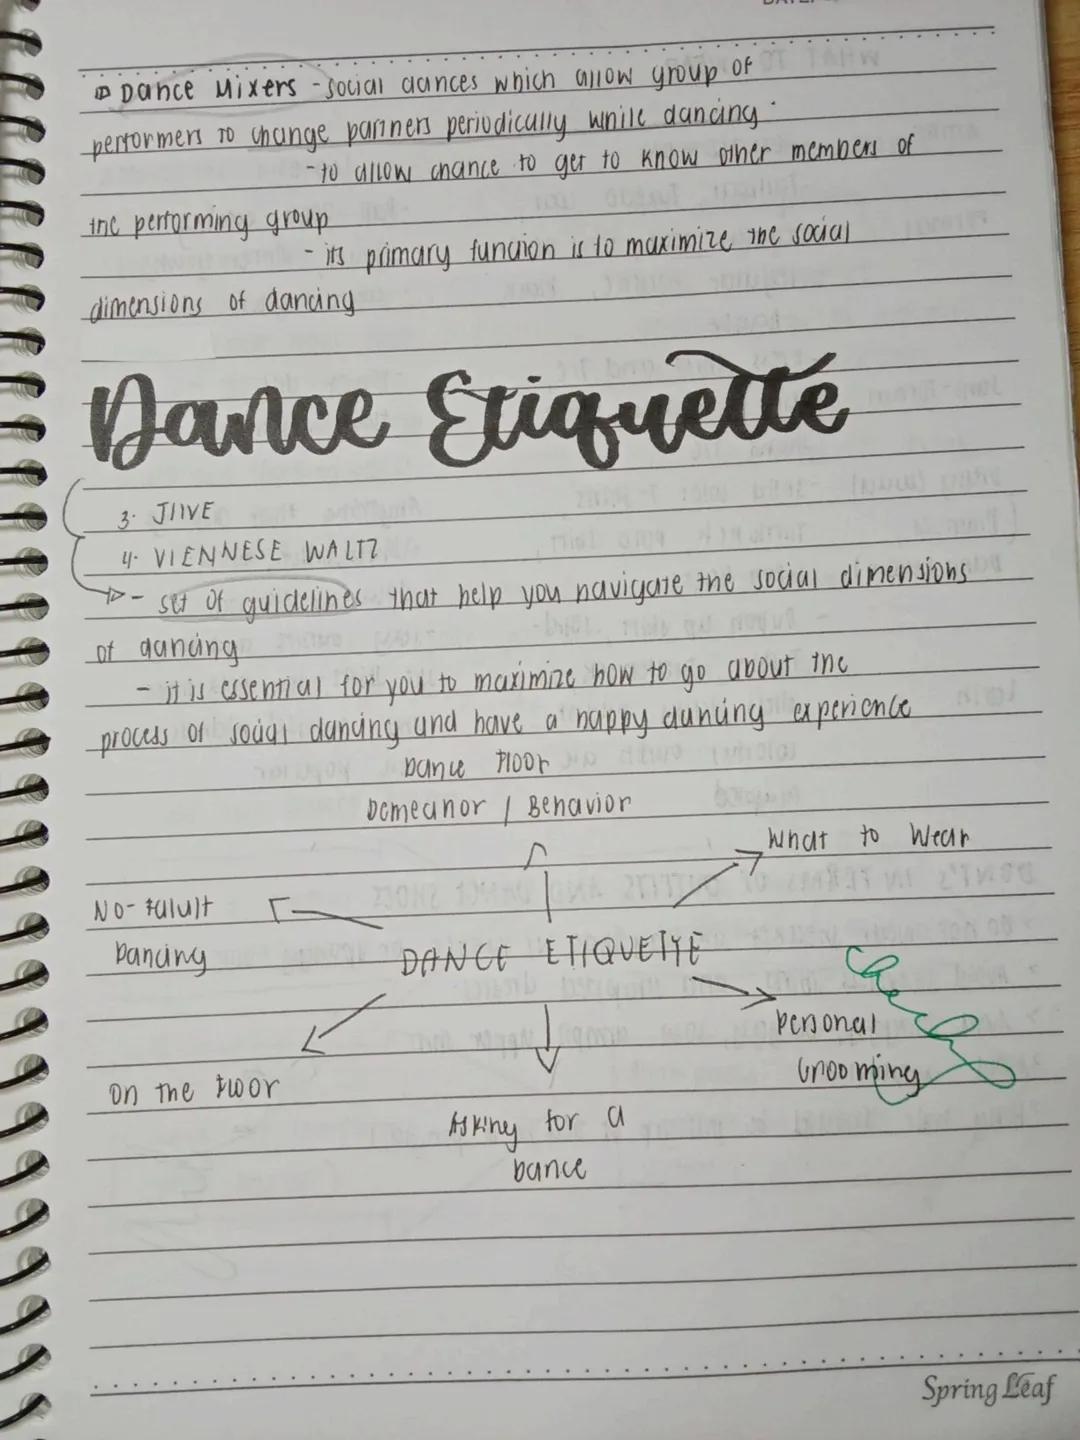 Dance Mixers - social dances which allow group of
performers to change partners periodically while dancing.
- to allow chance to get to know other members of
the performing group
- its primary function is to maximize the social
dimensions of dancing
Dance Etiquette
3. JIIVE
4. VIENNESE WALTZ
- set of guidelines that help you navigate the social dimensions
of dancing
- it is essential for you to maximize how to go about the
process of social dancing and have a happy dancing experience
Dance Floor
Demeanor / Behavior
What to Wear
No-Falult
Dancing
DANCE ETIQUETTE
Personal
Grooming
On the Floor
Asking for a
Dance
Spring Leaf